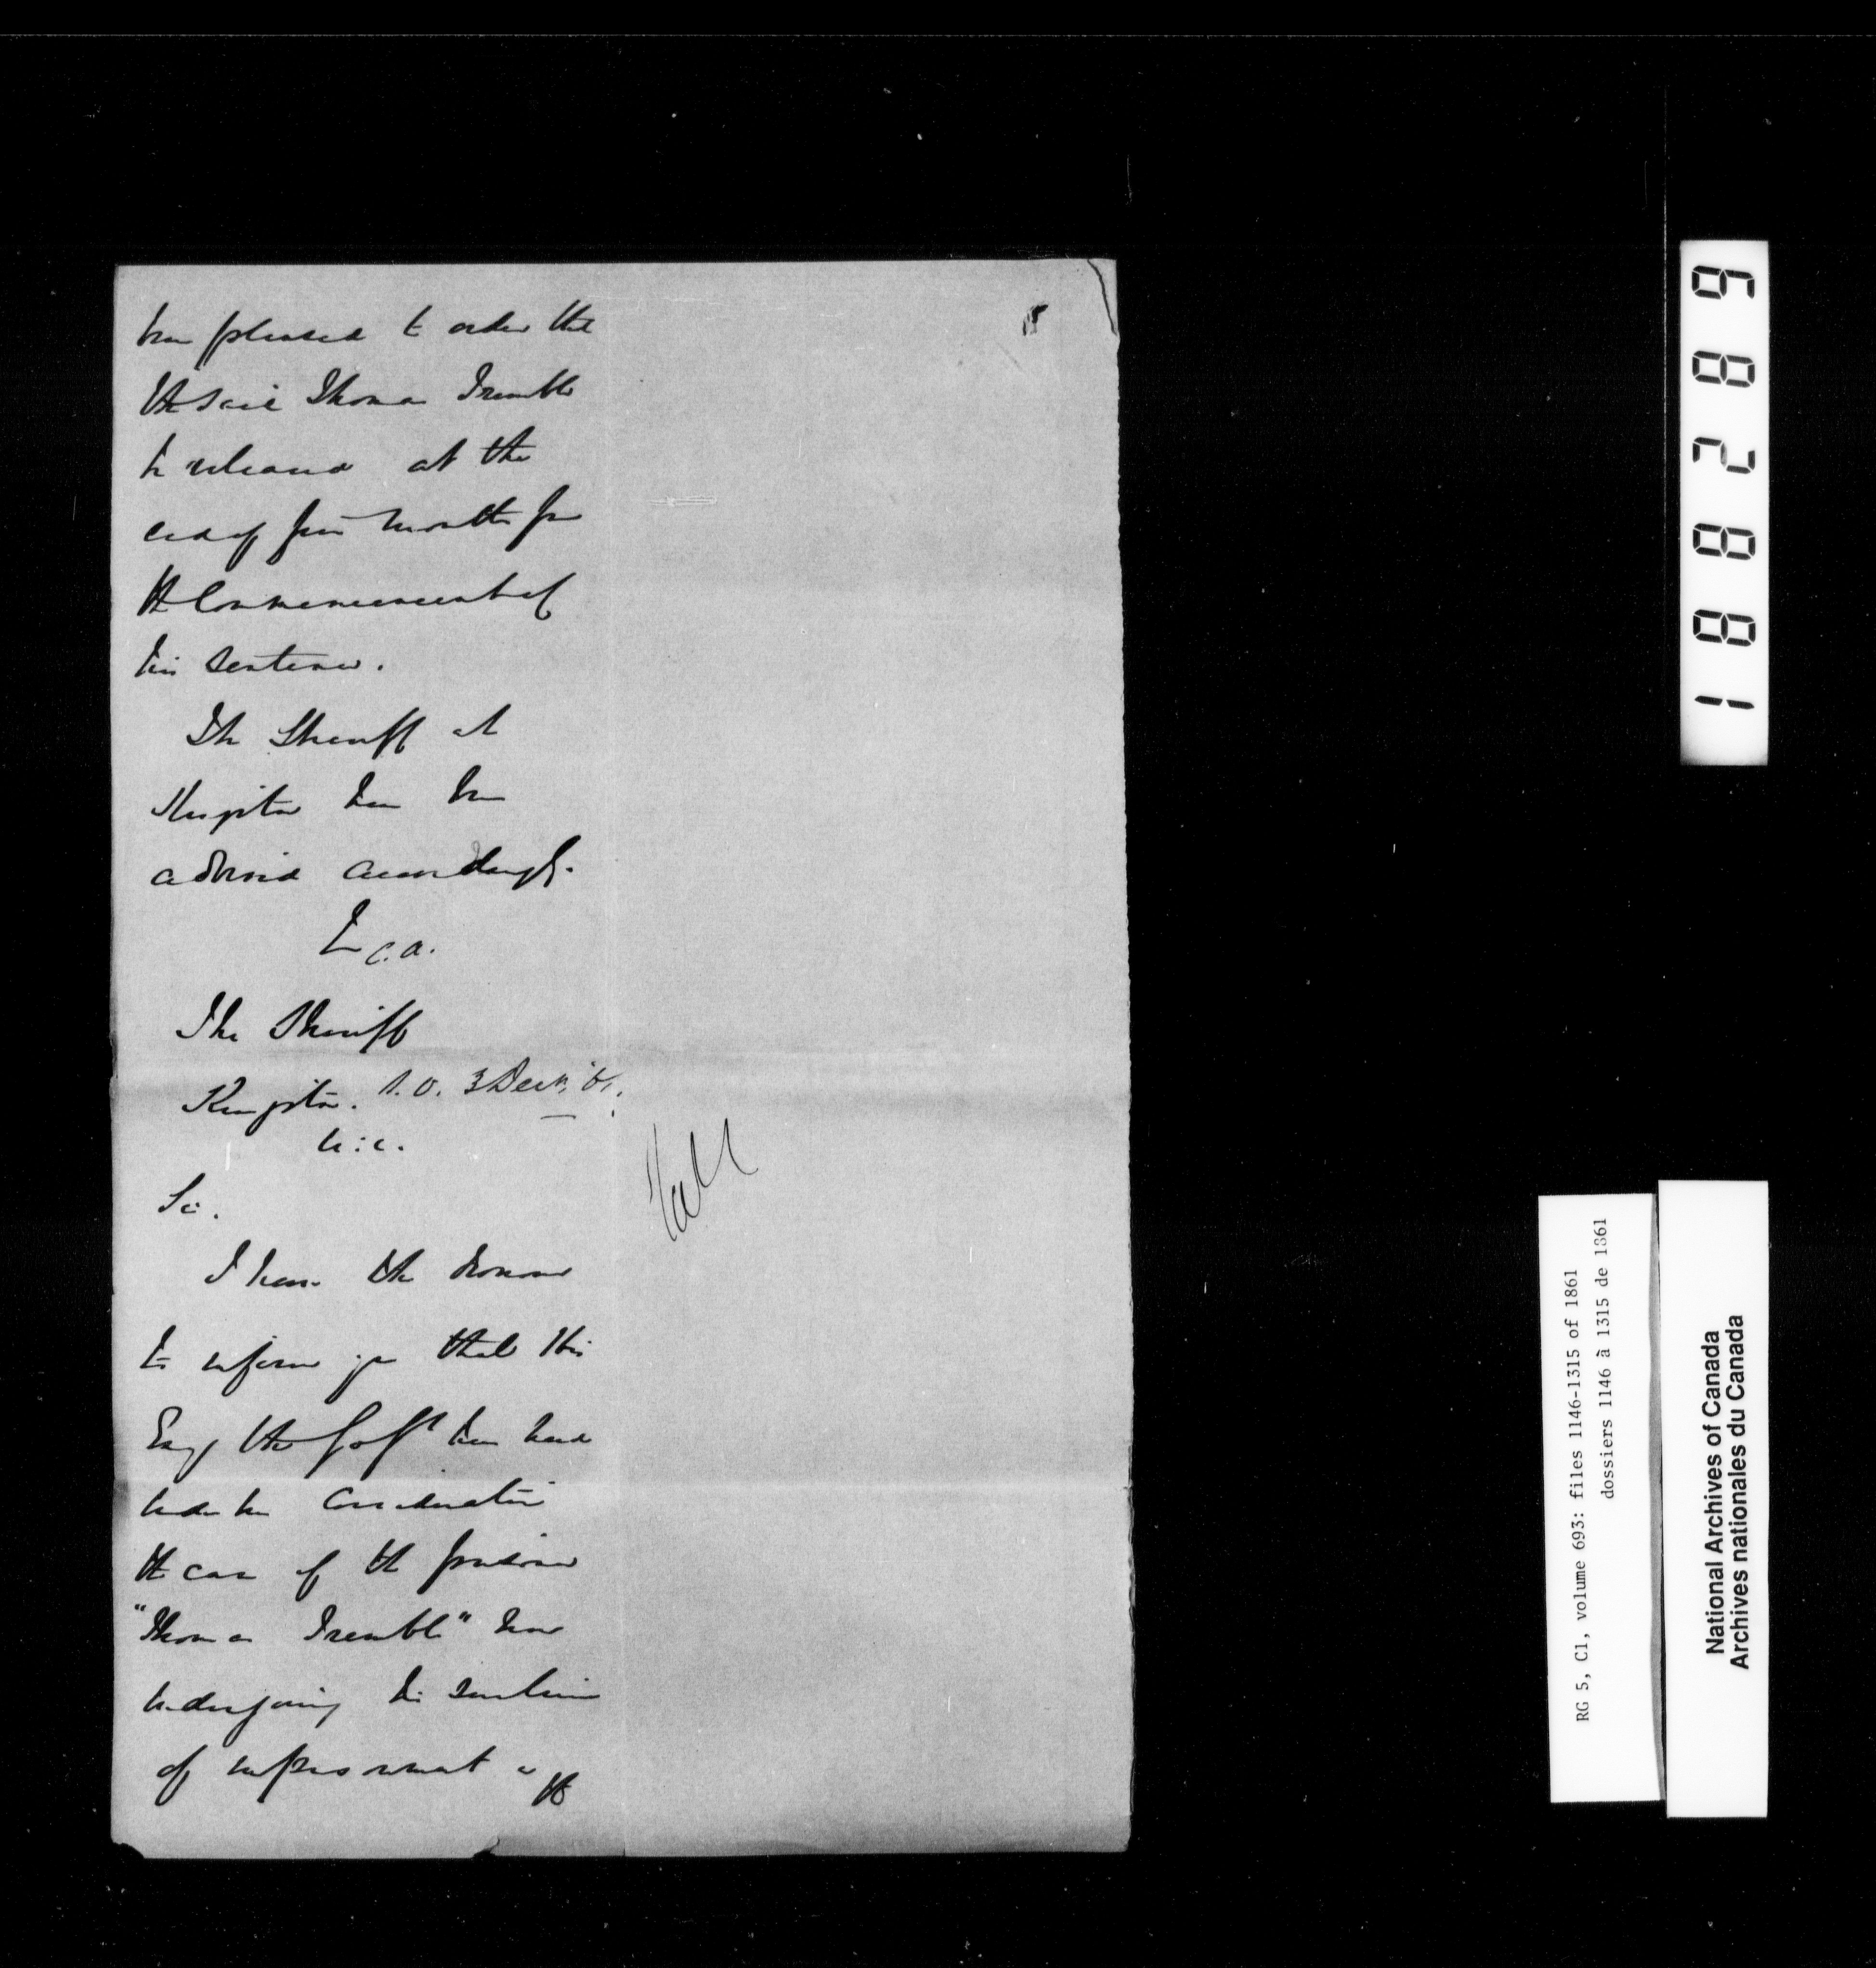 been pleased to order that
the said Thomas Tremble
be released at the
end of four months from
the Commencement of
his sentence.
The Sheriff at
Kingston has been
advised accordingly.
The Sheriff
Kingston. 3 Decr. '61.
U.C.
Sir.
I have the honour
to inform you that His
Excy the Gov Gl has had
under his Consideration
the case of the prisoner
"Thomas Tremble" now
undergoing his sentence
of imprisonment in the
188289
RG 5, C1, volume 693: files 1146-1315 of 1861
dossiers 1146 à 1315 de 1861
National Archives of Canada
Archives nationales du Canada